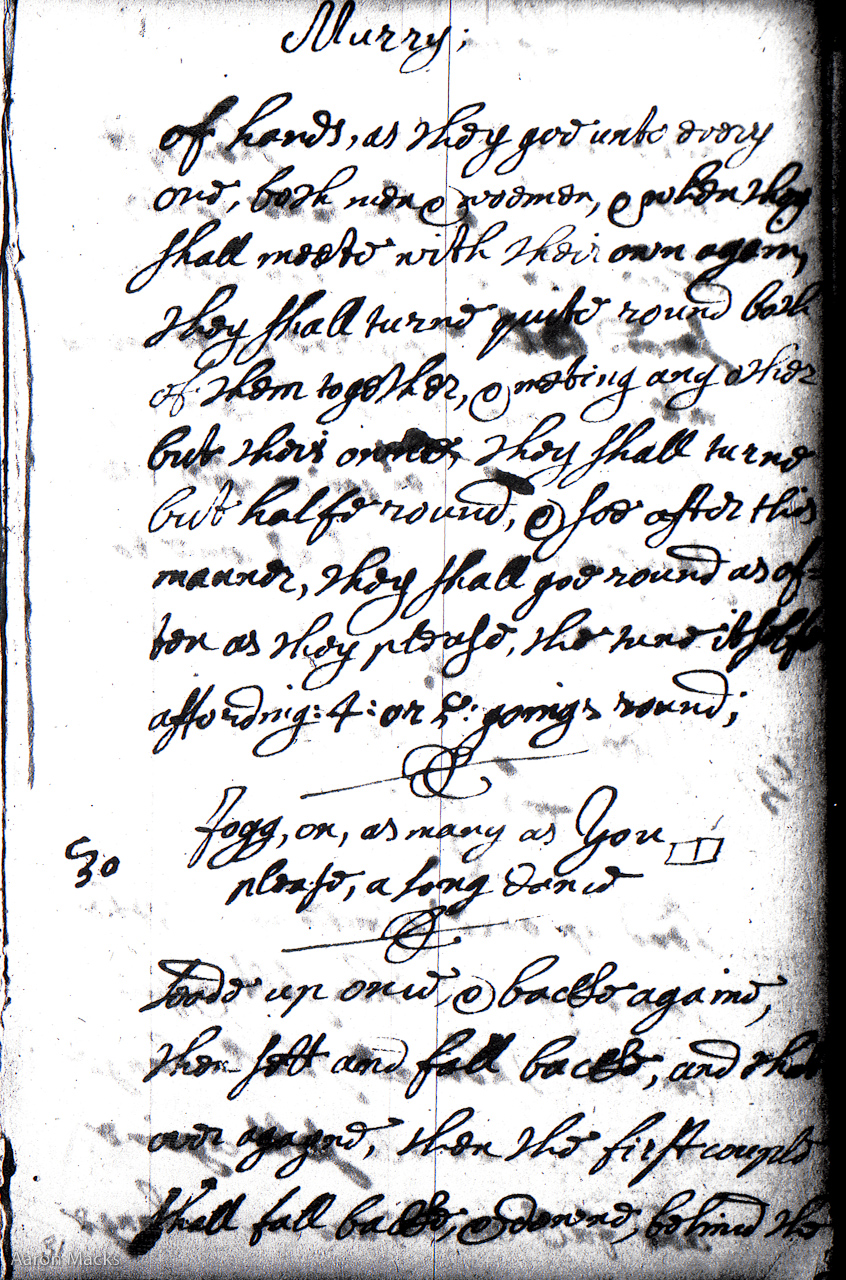 Murry;
of hands, as they goe unto every
one, both men & woemen, & when they
shall meete with their own again,
they shall turne quite round both
of them together, & meting any other
but theis owne, they shall turne
but halfe round, & soe after this
manner, they shall goe round as of=
ten as they please, the tune it selfe
affording: 4: or 5: goings round;
30
Jogg, on, as many as You
please, a long dance
Leade up once, & backe againe,
then sett and fall backe, and that
over agayne, then the first couple
shall fall backe, & downe, behind the
Aaron Macks